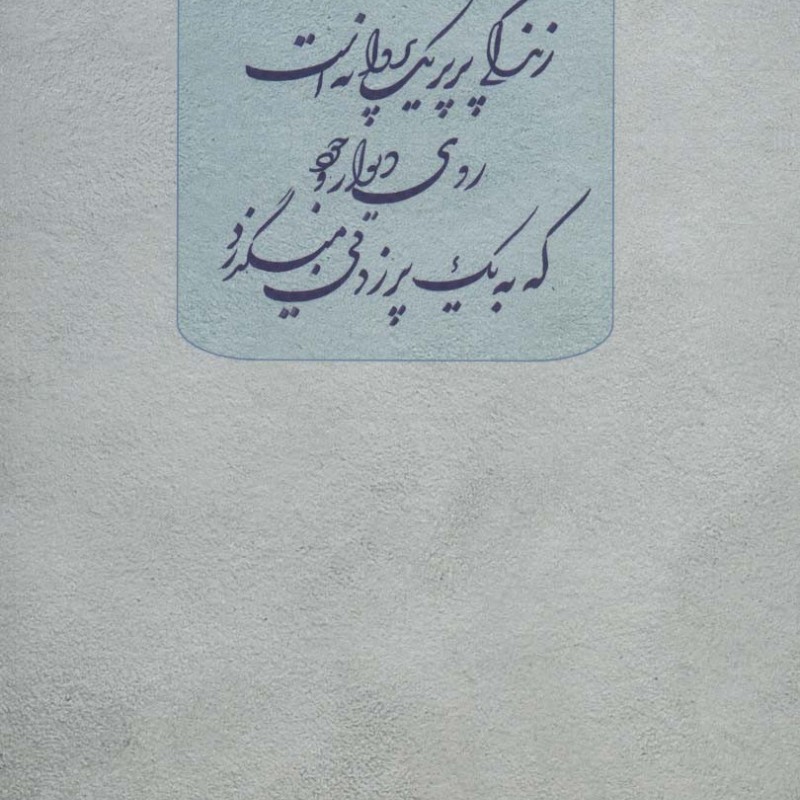 زندگی پرپر یک پروانه است
روی دیوار وجود
که به یک پر زدنی میگذرد